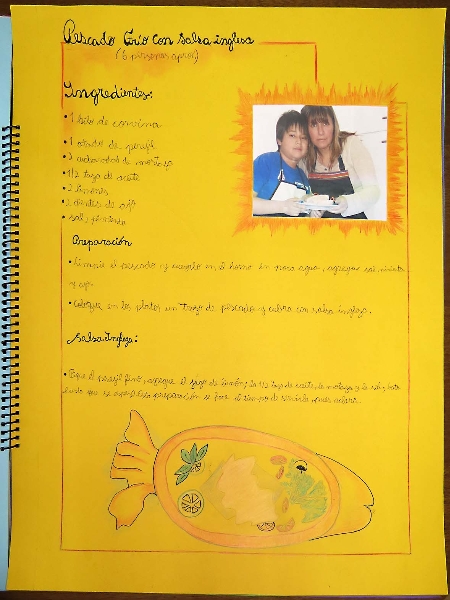 Pescado Frío con Salsa inglesa
(6 personas aprox)
Ingredientes:
• 1 kilo de corvina
• 1 atado de perejil
• 3 cucharadas de mostaza
• 1/2 taza de aceite
• 2 limones
• 2 dientes de ajo
• sal, pimienta
Preparación
• Limpie el pescado y cuezalo en el horno en poca agua, agregar sal, pimienta
y ajo.
• Coloque en los platos un trozo de pescado y cubra con salsa inglesa.
Salsa Inglesa:
• Pique el perejil fino, agregue el jugo de limón, la 1/2 taza de aceite, la mostaza y la sal,
que preparación se hace al tiempo de servirla